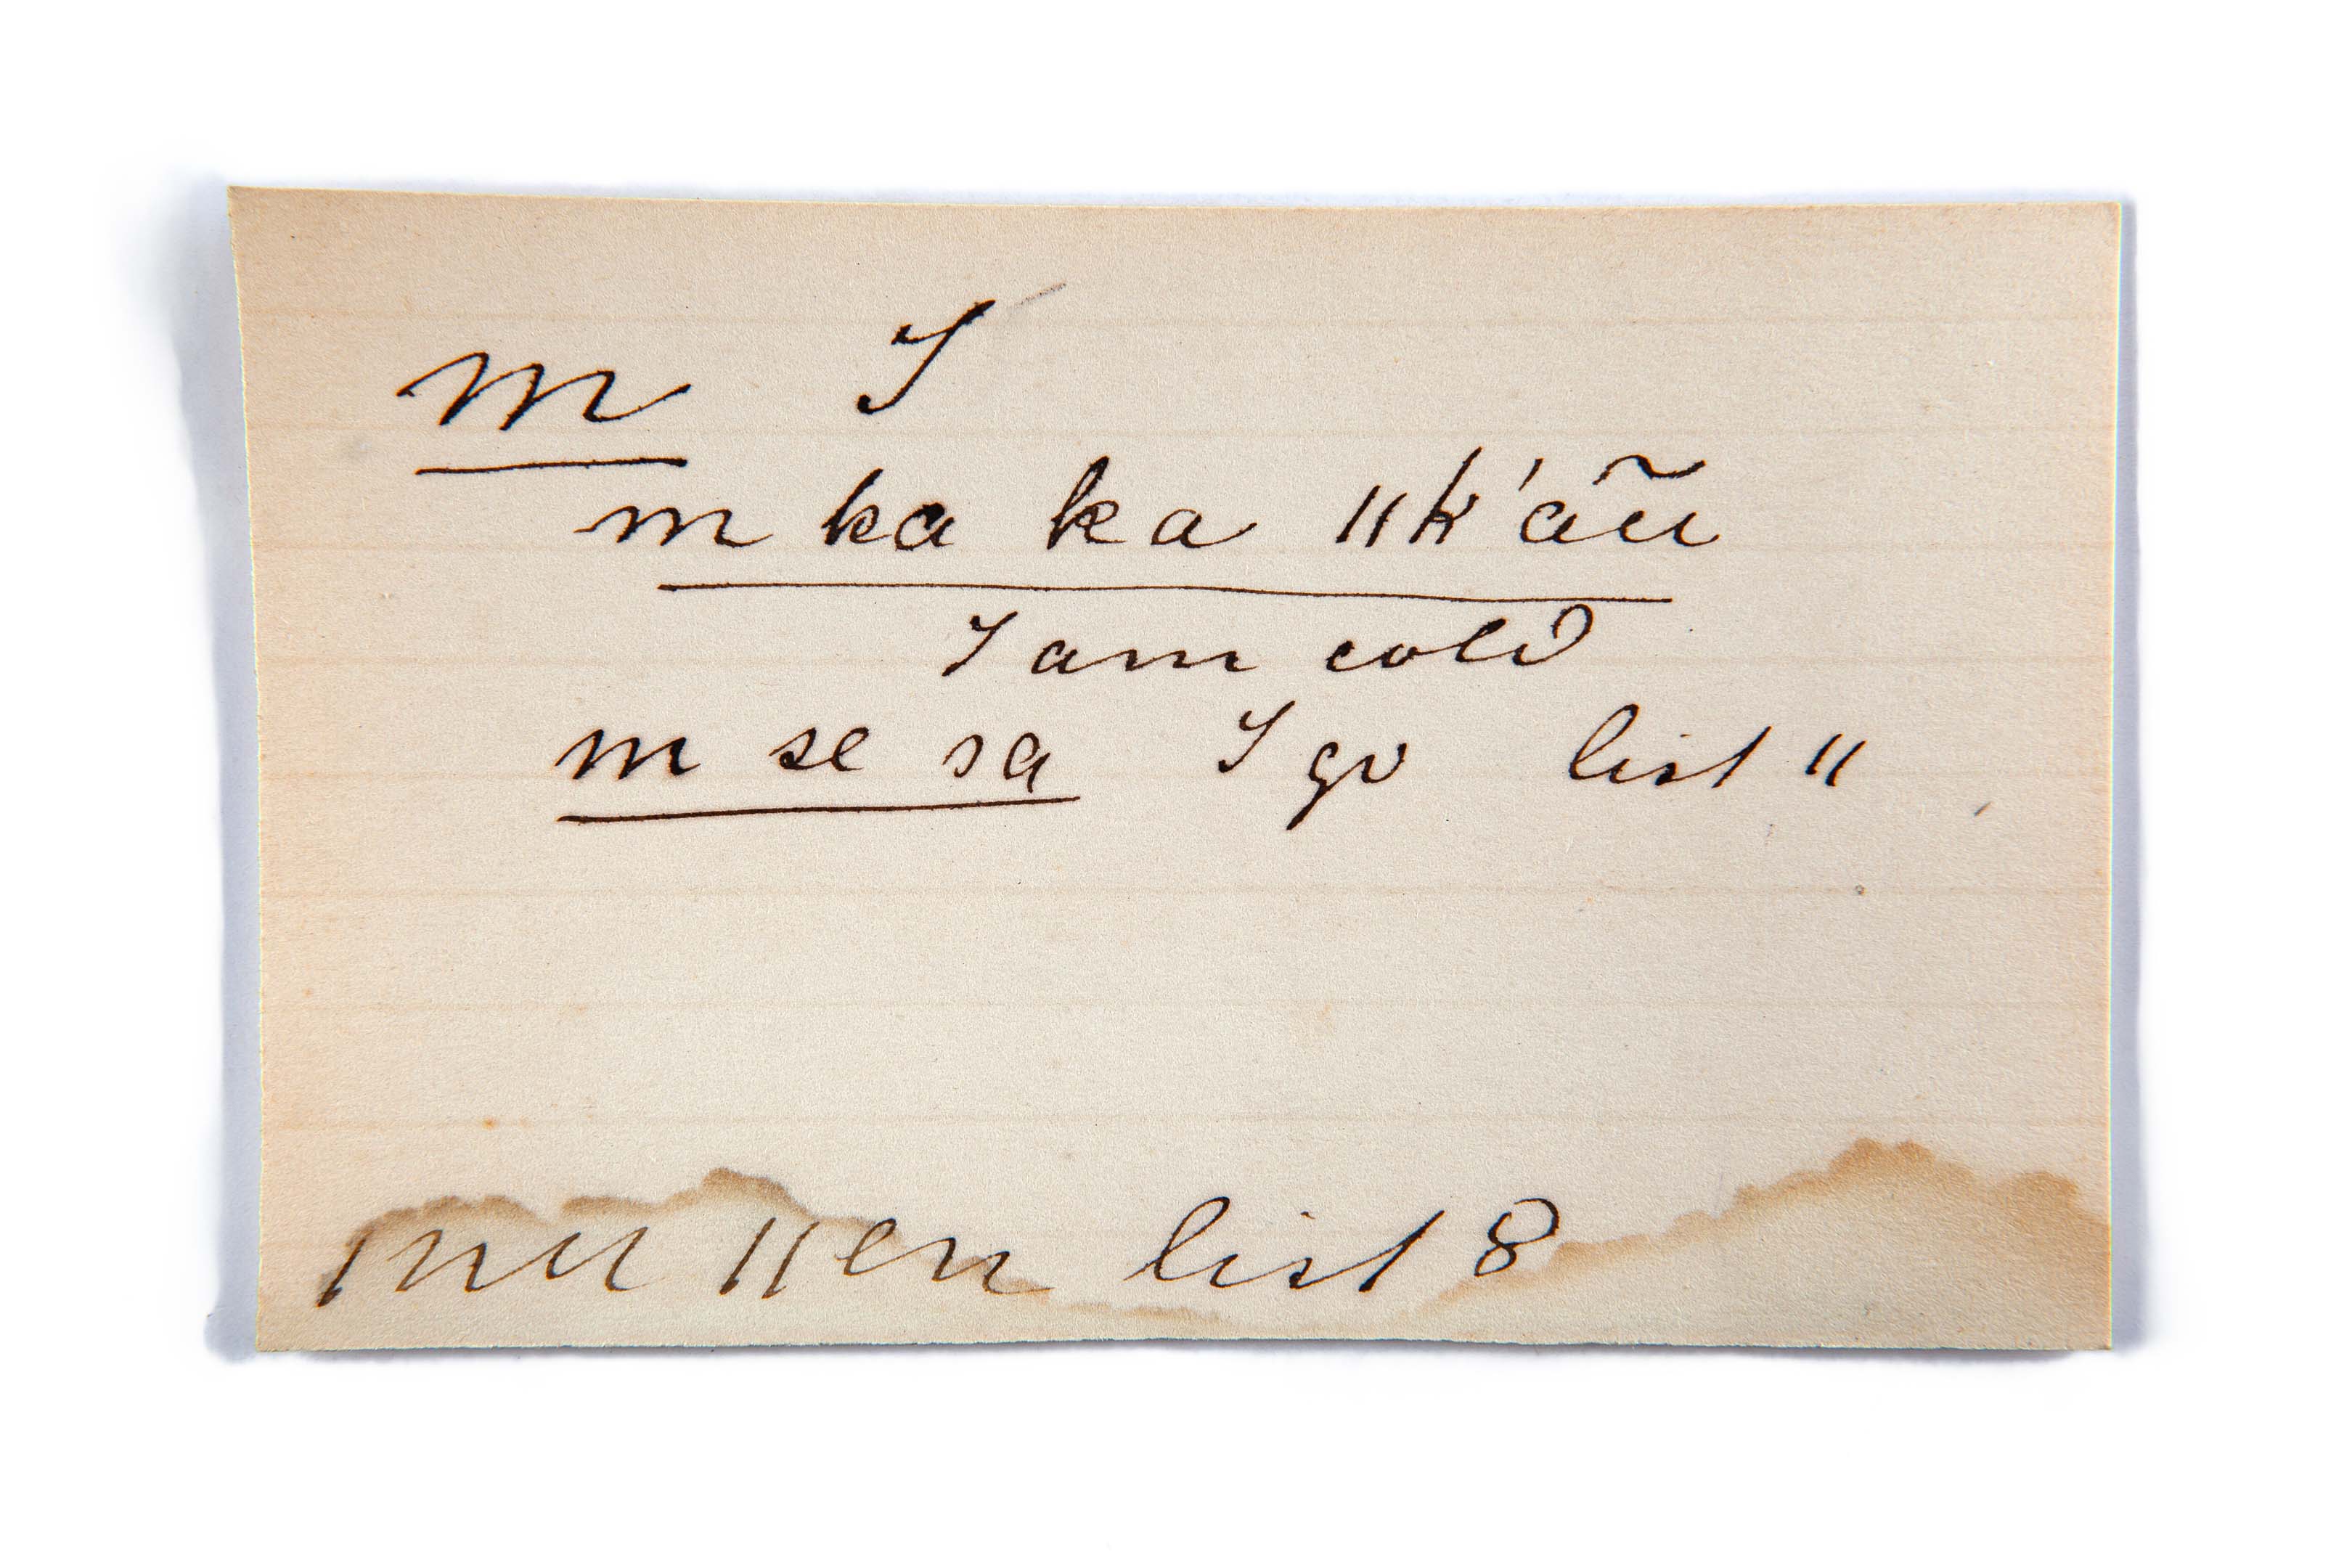 m I
m ka ka ǁk'ãu
I am cold
m se sa I go list 11
ǀnu ǁen list 8